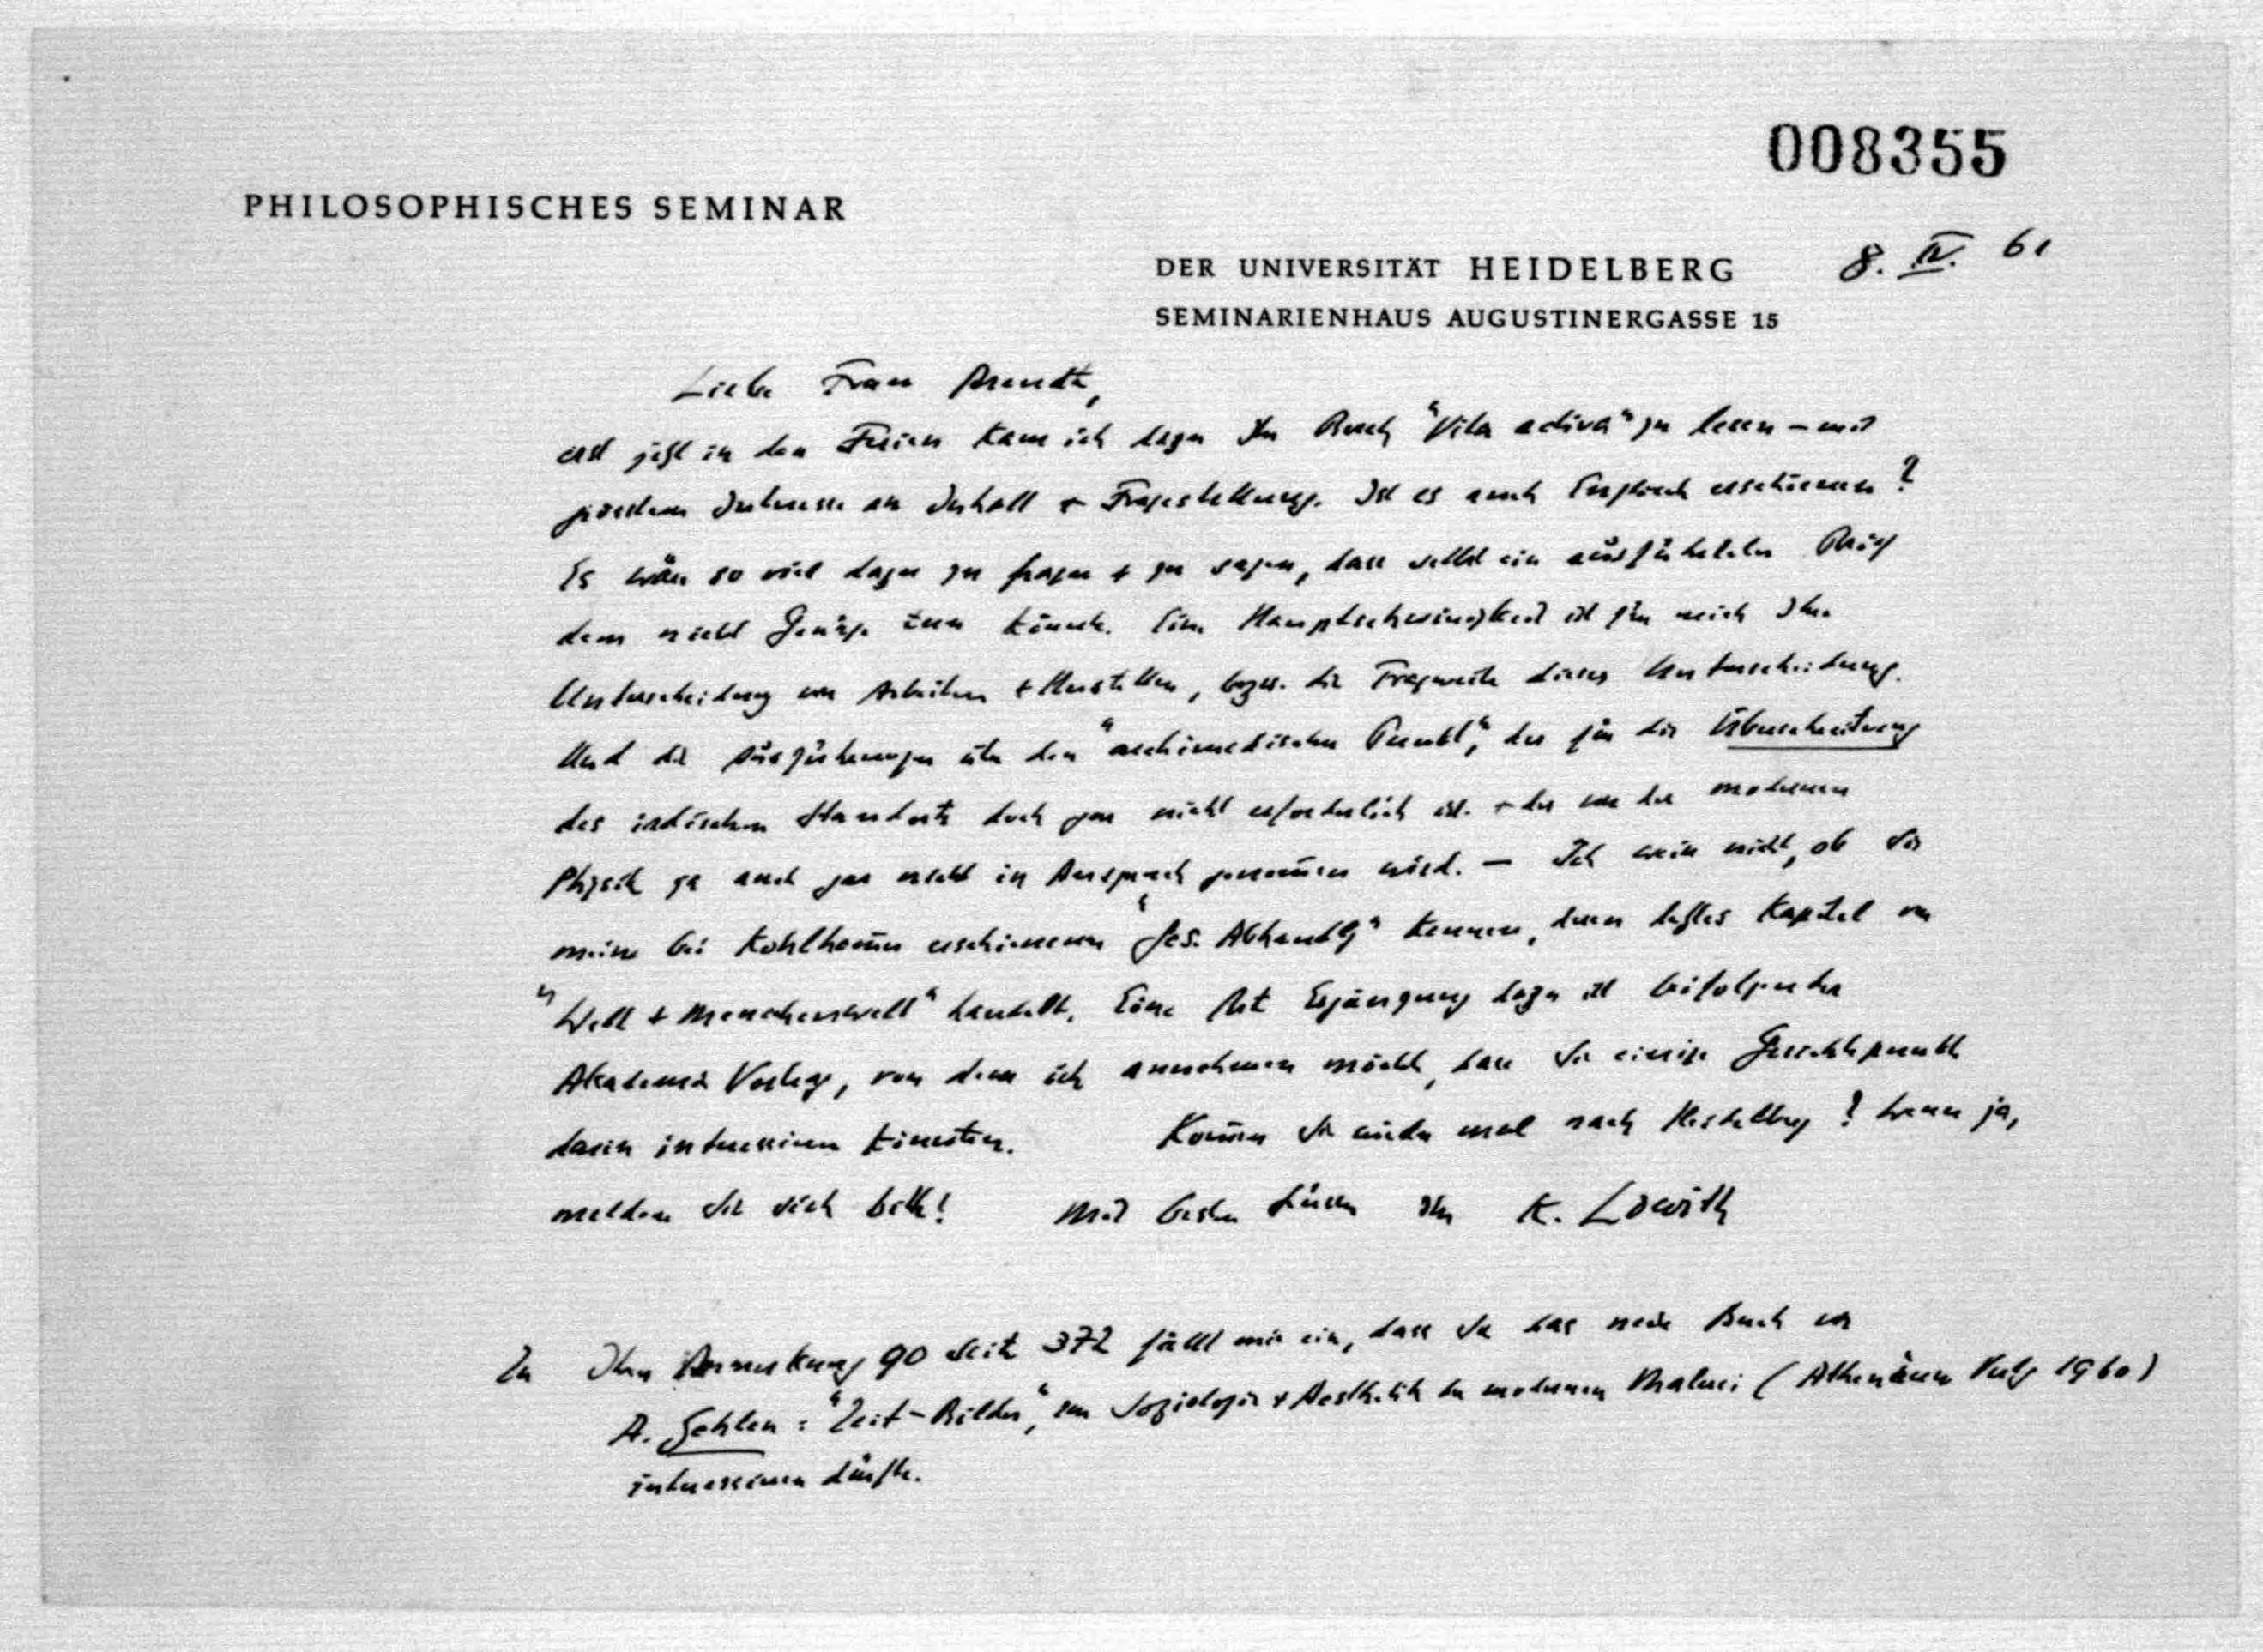 008355
PHILOSOPHISCHES SEMINAR
DER UNIVERSITÄT HEIDELBERG 8. IV. 61
SEMINARIENHAUS AUGUSTINERGASSE 15
Liebe Frau Arendt,
erst jetzt in den Ferien kam ich dazu Ihr Buch "Vita activa" zu lesen – mit
grösstem Interesse an Inhalt + Fragestellung. Ist es auch Englisch erschienen?
Es wäre so viel dazu zu fragen + zu sagen, dass selbst ein ausführlicher Brief
dem nicht Genüge tun könnte. Eine Hauptschwierigkeit ist für mich Ihre
Unterscheidung von Arbeiten + Herstellen, bezw. die Tragweite dieser Unterscheidung.
Und die Ausführungen über den "archimedischen Punkt", der für die Überschreitung
des irdischen Standorts doch gar nicht erforderlich ist + der von der modernen
Physik ja auch gar nicht in Anspruch genom̄en wird. — Ich weiss nicht, ob Sie
meine bei Kohlham̄er erschienenen "Ges. Abhandlg" kennen, deren letztes Kapitel von
"Welt + Menschenwelt" handelt. Eine Art Ergänzung dazu ist beifolgender
Akademie Vortrag, von dem ich annehmen möchte, dass Sie einige Gesichtspunkte
darin interessieren könnten. Kom̄en Sie wieder mal nach Heidelberg? Wenn ja,
melden Sie sich bitte! Mit besten Grüssen Ihr K. Löwith
Zu Ihrer Anmerkung 90 Seite 372 fällt mir ein, dass Sie das neue Buch von
A. Gehlen: "Zeit-Bilder", zur Soziologie + Aesthetik der modernen Malerei (Athenäum Verlg 1960)
interessieren dürfte.